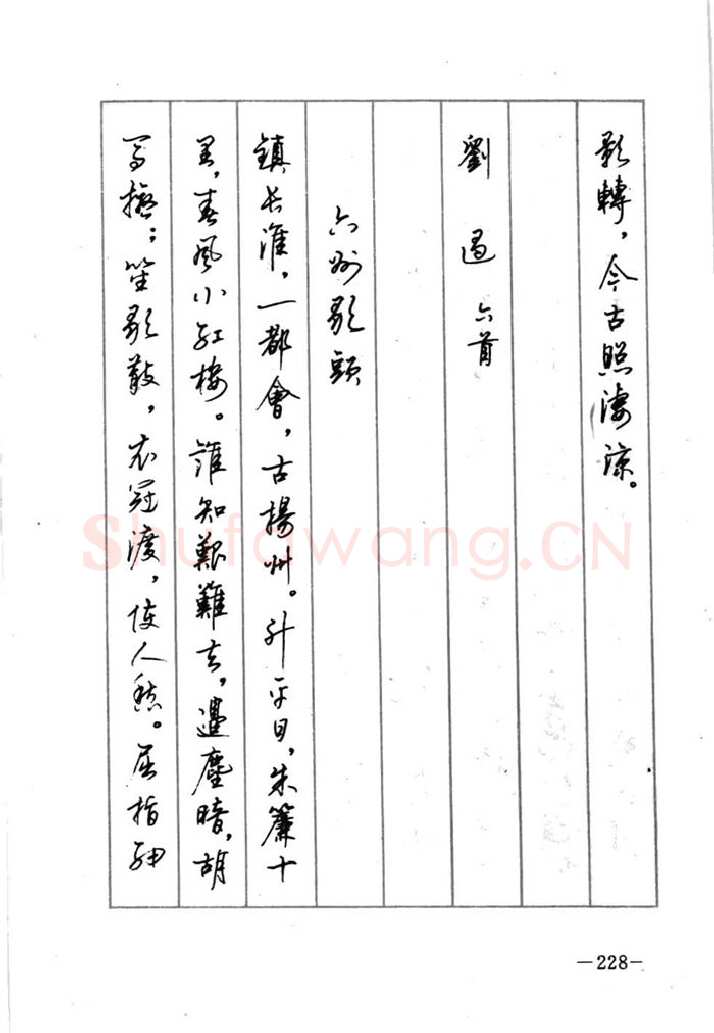 影轉，今古照淒涼。
劉過 六首
六州歌頭
鎮长淮，一都會，古揚州。升平日，朱簾十
里，春風小红樓。誰知艱難去，邊塵暗，胡
马擾；笙歌散，衣冠渡，使人愁。屈指细
Shufawang.CN
—228—